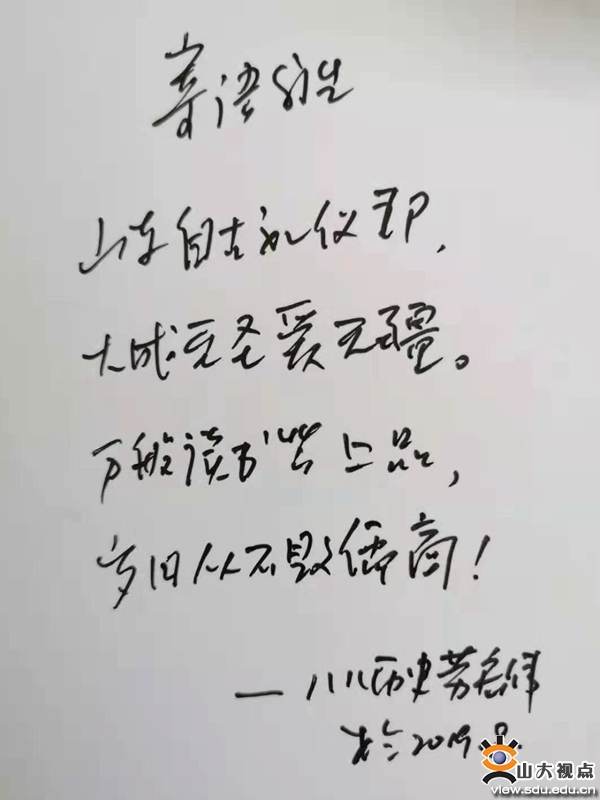 寄语新生
山东自古礼仪邦,
大成至圣爱无疆。
万般读书皆上品,
岁旧从不毁儒商!
— 八八历史劳
2019.
山大视点
view.sdu.edu.cn